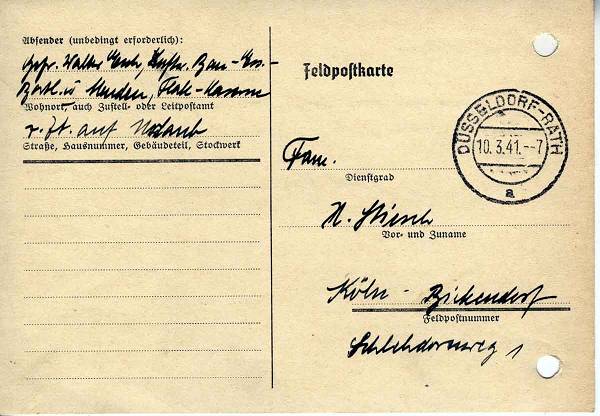 Absender (unbedingt erforderlich):
Gefr. Walter
Wohnort, auch Zustell- oder Leitpostamt
z. Zt. auf Urlaub
Straße, Hausnummer, Gebäudeteil, Stockwerk
Feldpostkarte
DÜSSELDORF-RATH
10.3.41.--7
a
Fam.
Dienstgrad
H.
Vor- und Zuname
Köln - Bickendorf
Feldpostnummer
Schlehdornweg 1